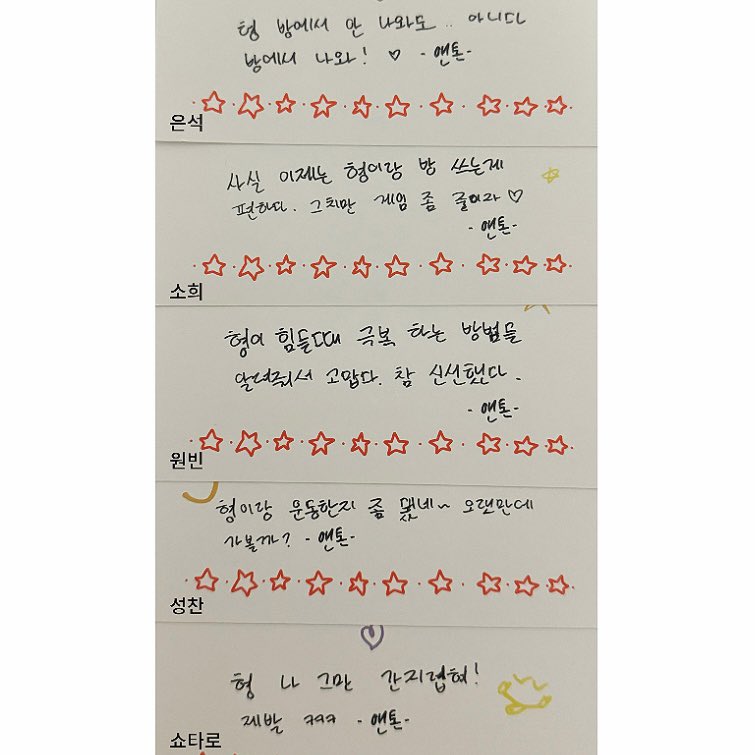 형 방에서 안 나와도.. 아니다
방에서 나와! ♡ -앤톤-
은석
사실 이제는 형이랑 방 쓰는게
편하다. 그치만 게임 좀 줄이자 ♡
-앤톤-
소희
형이 힘들때 극복 하는 방법들
알려줘서 고맙다. 참 신선했다.
-앤톤-
원빈
형이랑 운동한지 좀 됐네~ 오랜만에
가볼까? -앤톤-
성찬
형 나 그만 간지럽혀!
제발 ㅋㅋㅋ -앤톤-
쇼타로